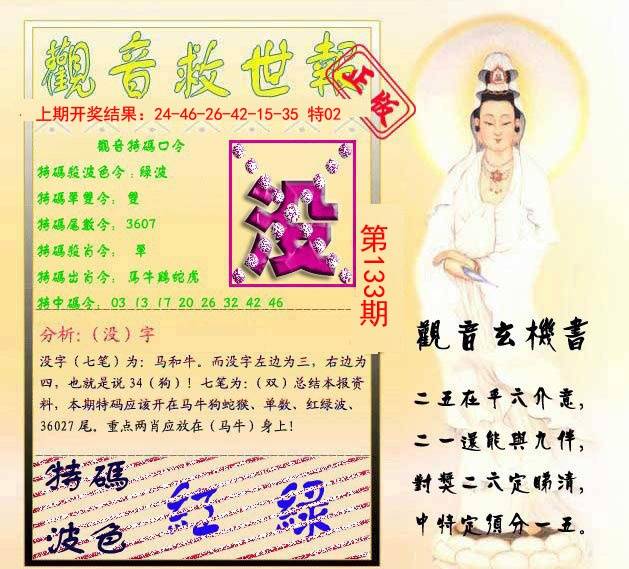 觀音救世報
正版
上期开奖结果：24-46-26-42-15-35 特02
觀音特碼口令
特碼殺波色令：綠波
特碼單雙令： 雙
特碼尾數令： 3607
特碼殺肖令： 單
特碼出肖令： 馬牛鷄蛇虎
特中碼令： 03 13 17 20 26 32 42 46
没
第133期
分析：（没）字
没字（七笔）为：马和牛。而没字左边为三，右边为
四，也就是说34（狗）！七笔为：（双）总结本报资
料，本期特码应该开在马牛狗蛇猴、单数、红绿波、
36027尾。重点两肖应放在（马牛）身上！
特碼
波色
紅 綠
觀音玄機書
二五在平六介意，
二一還能與九伴，
對獎二六定睇清，
中特定領分一五。